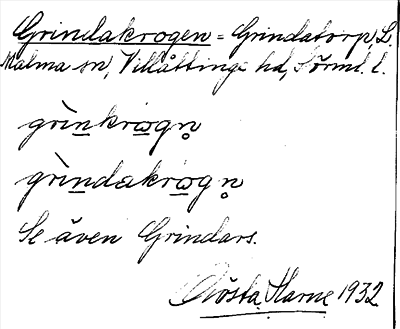 Grindakrogen = Grindatorp, L.
Malma sn, Villåttinge hd, Sörml. l.
grìnkrωgn̥
grìndakrωgn̥
Se även Grindars.
Gösta Harne 1932